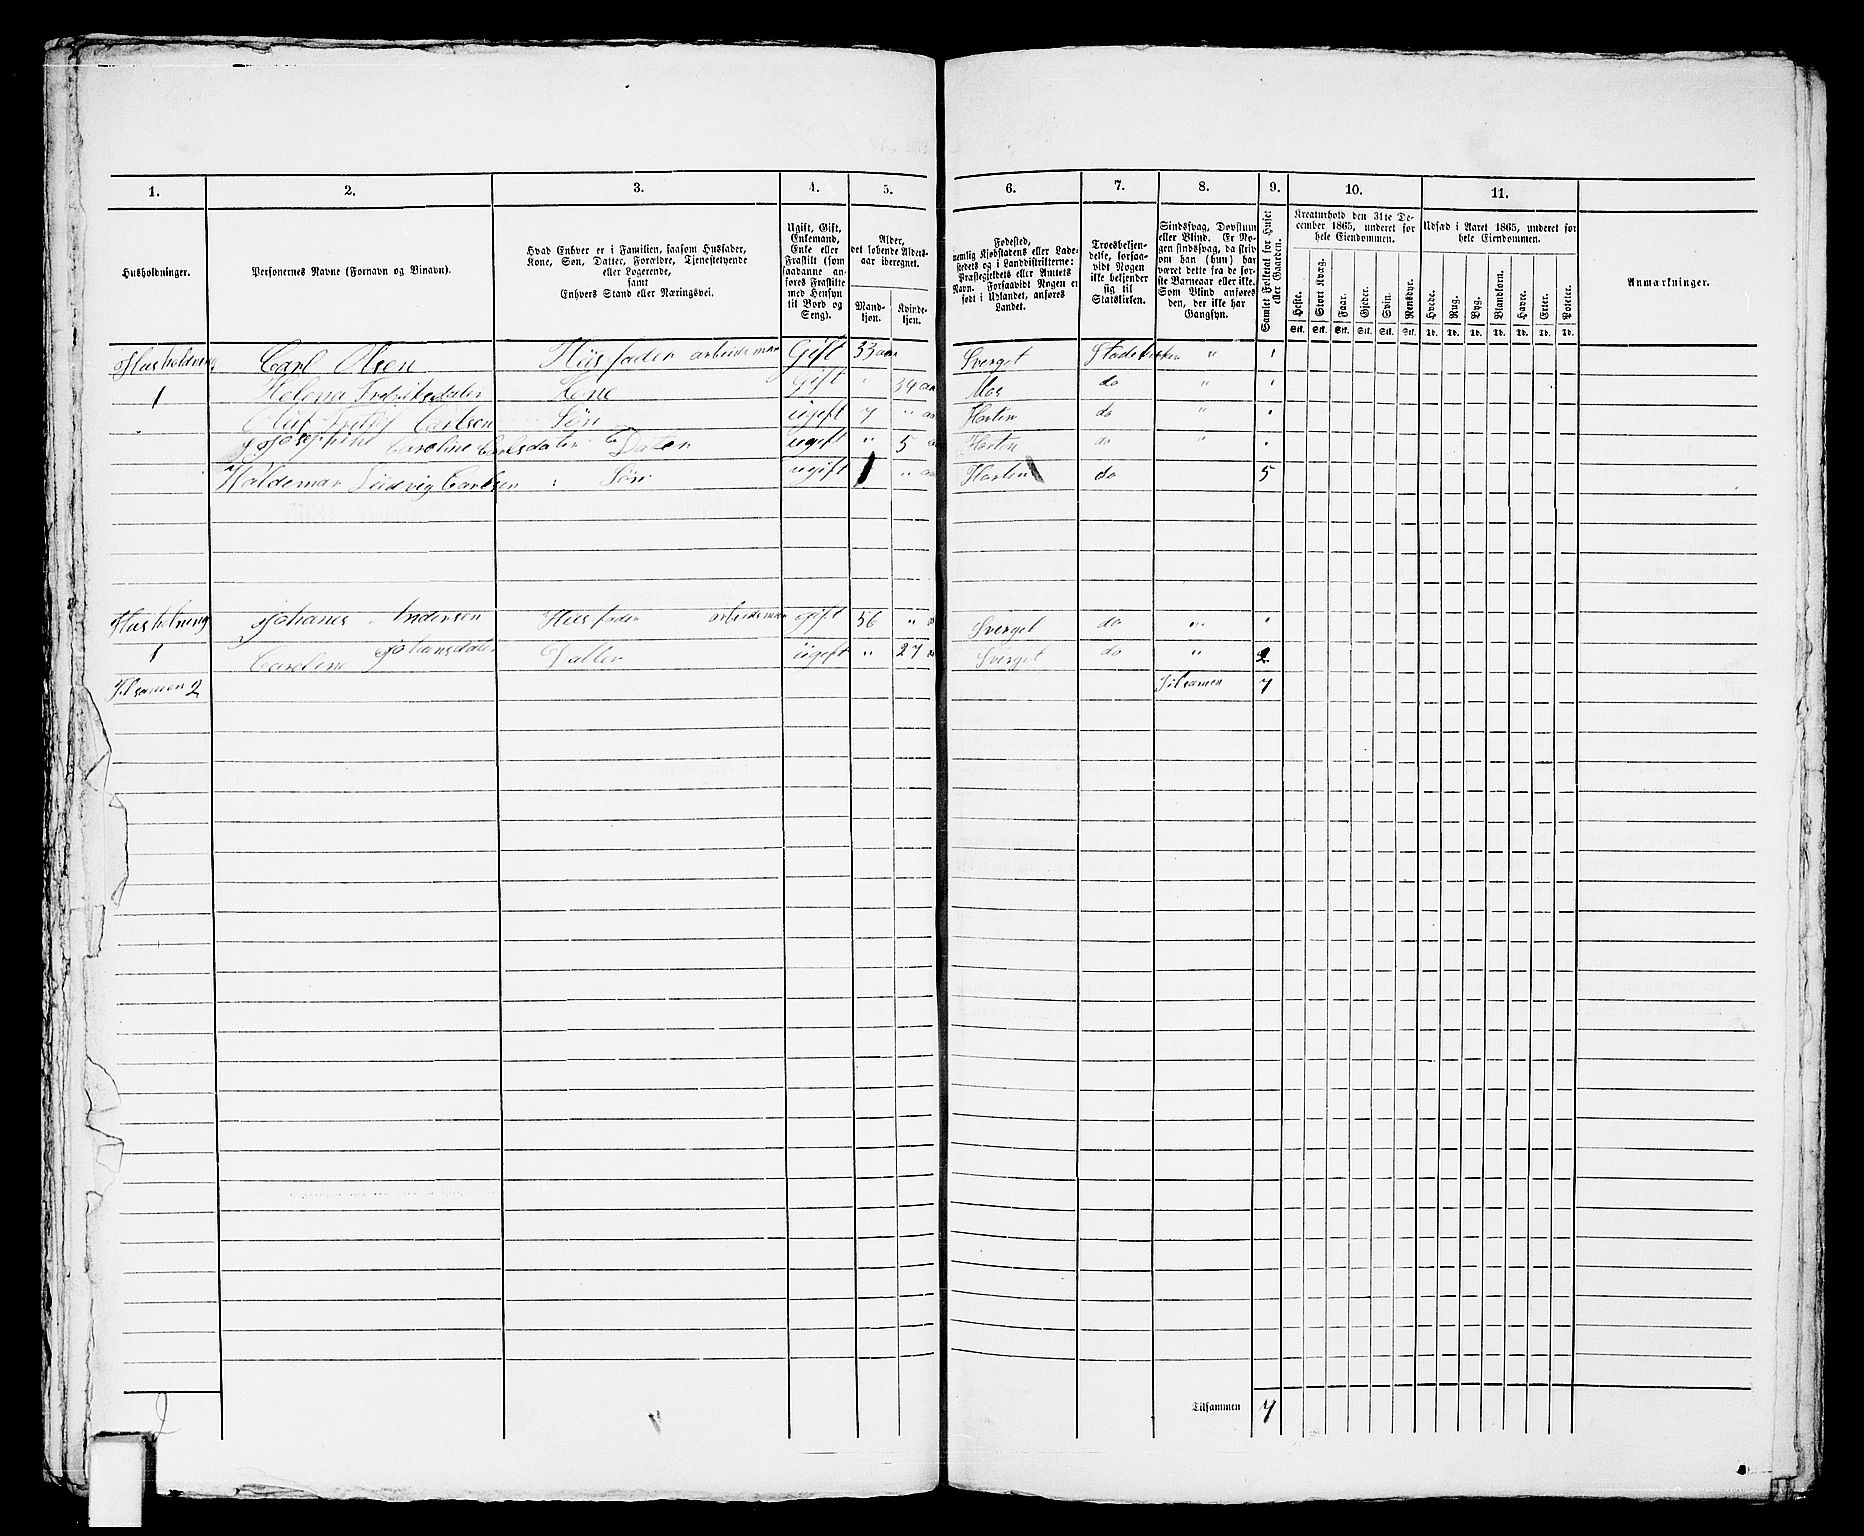 1. 2. 3. 4. 5. 6. 7. 8. 9. 10. 11.
Husholdninger.
Personernes Navne (Fornavn og Binavn).
Hvad Enhver er i Familien, saasom Husfader,
Kone, Søn, Datter, Forældre, Tjenestetyende
eller Logerende,
samt
Enhvers Stand eller Næringsvei.
Ugift, Gift,
Enkemand,
Enke eller
Fraskilt (som
saadanne an-
føres Fraskilte
med Hensyn
til Bord og
Seng).
Alder,
det løbende Alders-
aar iberegnet.
Mand-
kjøn.
Kvinde-
kjøn.
Fødested,
nemlig Kjøbstadens eller Lade-
stedets og i Landdistrikterne:
Præstegjeldets eller Amtets
Navn. Forsaavidt Nogen er
født i Udlandet, anføres
Landet.
Troesbekjen-
delse, forsaa-
vidt Nogen
ikke bekjender
sig til
Statskirken.
Sindssvag, Døvstum
eller Blind. Er No-
gen sindssvag, da skriv
om han (hun) har
været dette fra de før-
ste Barneaar eller ikke.
Som Blind anføres
den, der ikke har
Gangsyn.
Samlet Folketal for Huset
eller Gaarden.
Kreaturhold den 31te De-
cember 1865, underet for
hele Eiendommen.
Heste. Stort Kvæg. Faar. Gjeder. Svin. Rensdyr.
Stk. Stk. Stk. Stk. Stk. Stk.
Udsæd i Aaret 1865, underet for
hele Eiendommen.
Hvede. Rug. Byg. Blandkorn. Havre. Erter. Poteter.
Td. Td. Td. Td. Td. Td. Td.
Anmærkninger.
Husholdning Carl Olsen Huisfader arbeidsman Gift 33 aar Sverget Stadskirken "
1 Helena Fredriksdater Kone Gift " 34 aar Mos do "
Oluf Carlsen Søn ugift 7 " Horten do "
Josephine Caroline Carlsdater Dater ugift " 5 Horten do "
Valdemar Ludvig Carlsen Søn ugift 1 " Horten do 5
Husholning Johanes Andersen Huisfader arbeidsman gift 56 " Sverget do "
1 Caroline Johansdater Datter ugift " 27 Sverget do " 2
Tilsamen 2 Tilsamen 7
Tilsammen 7
2